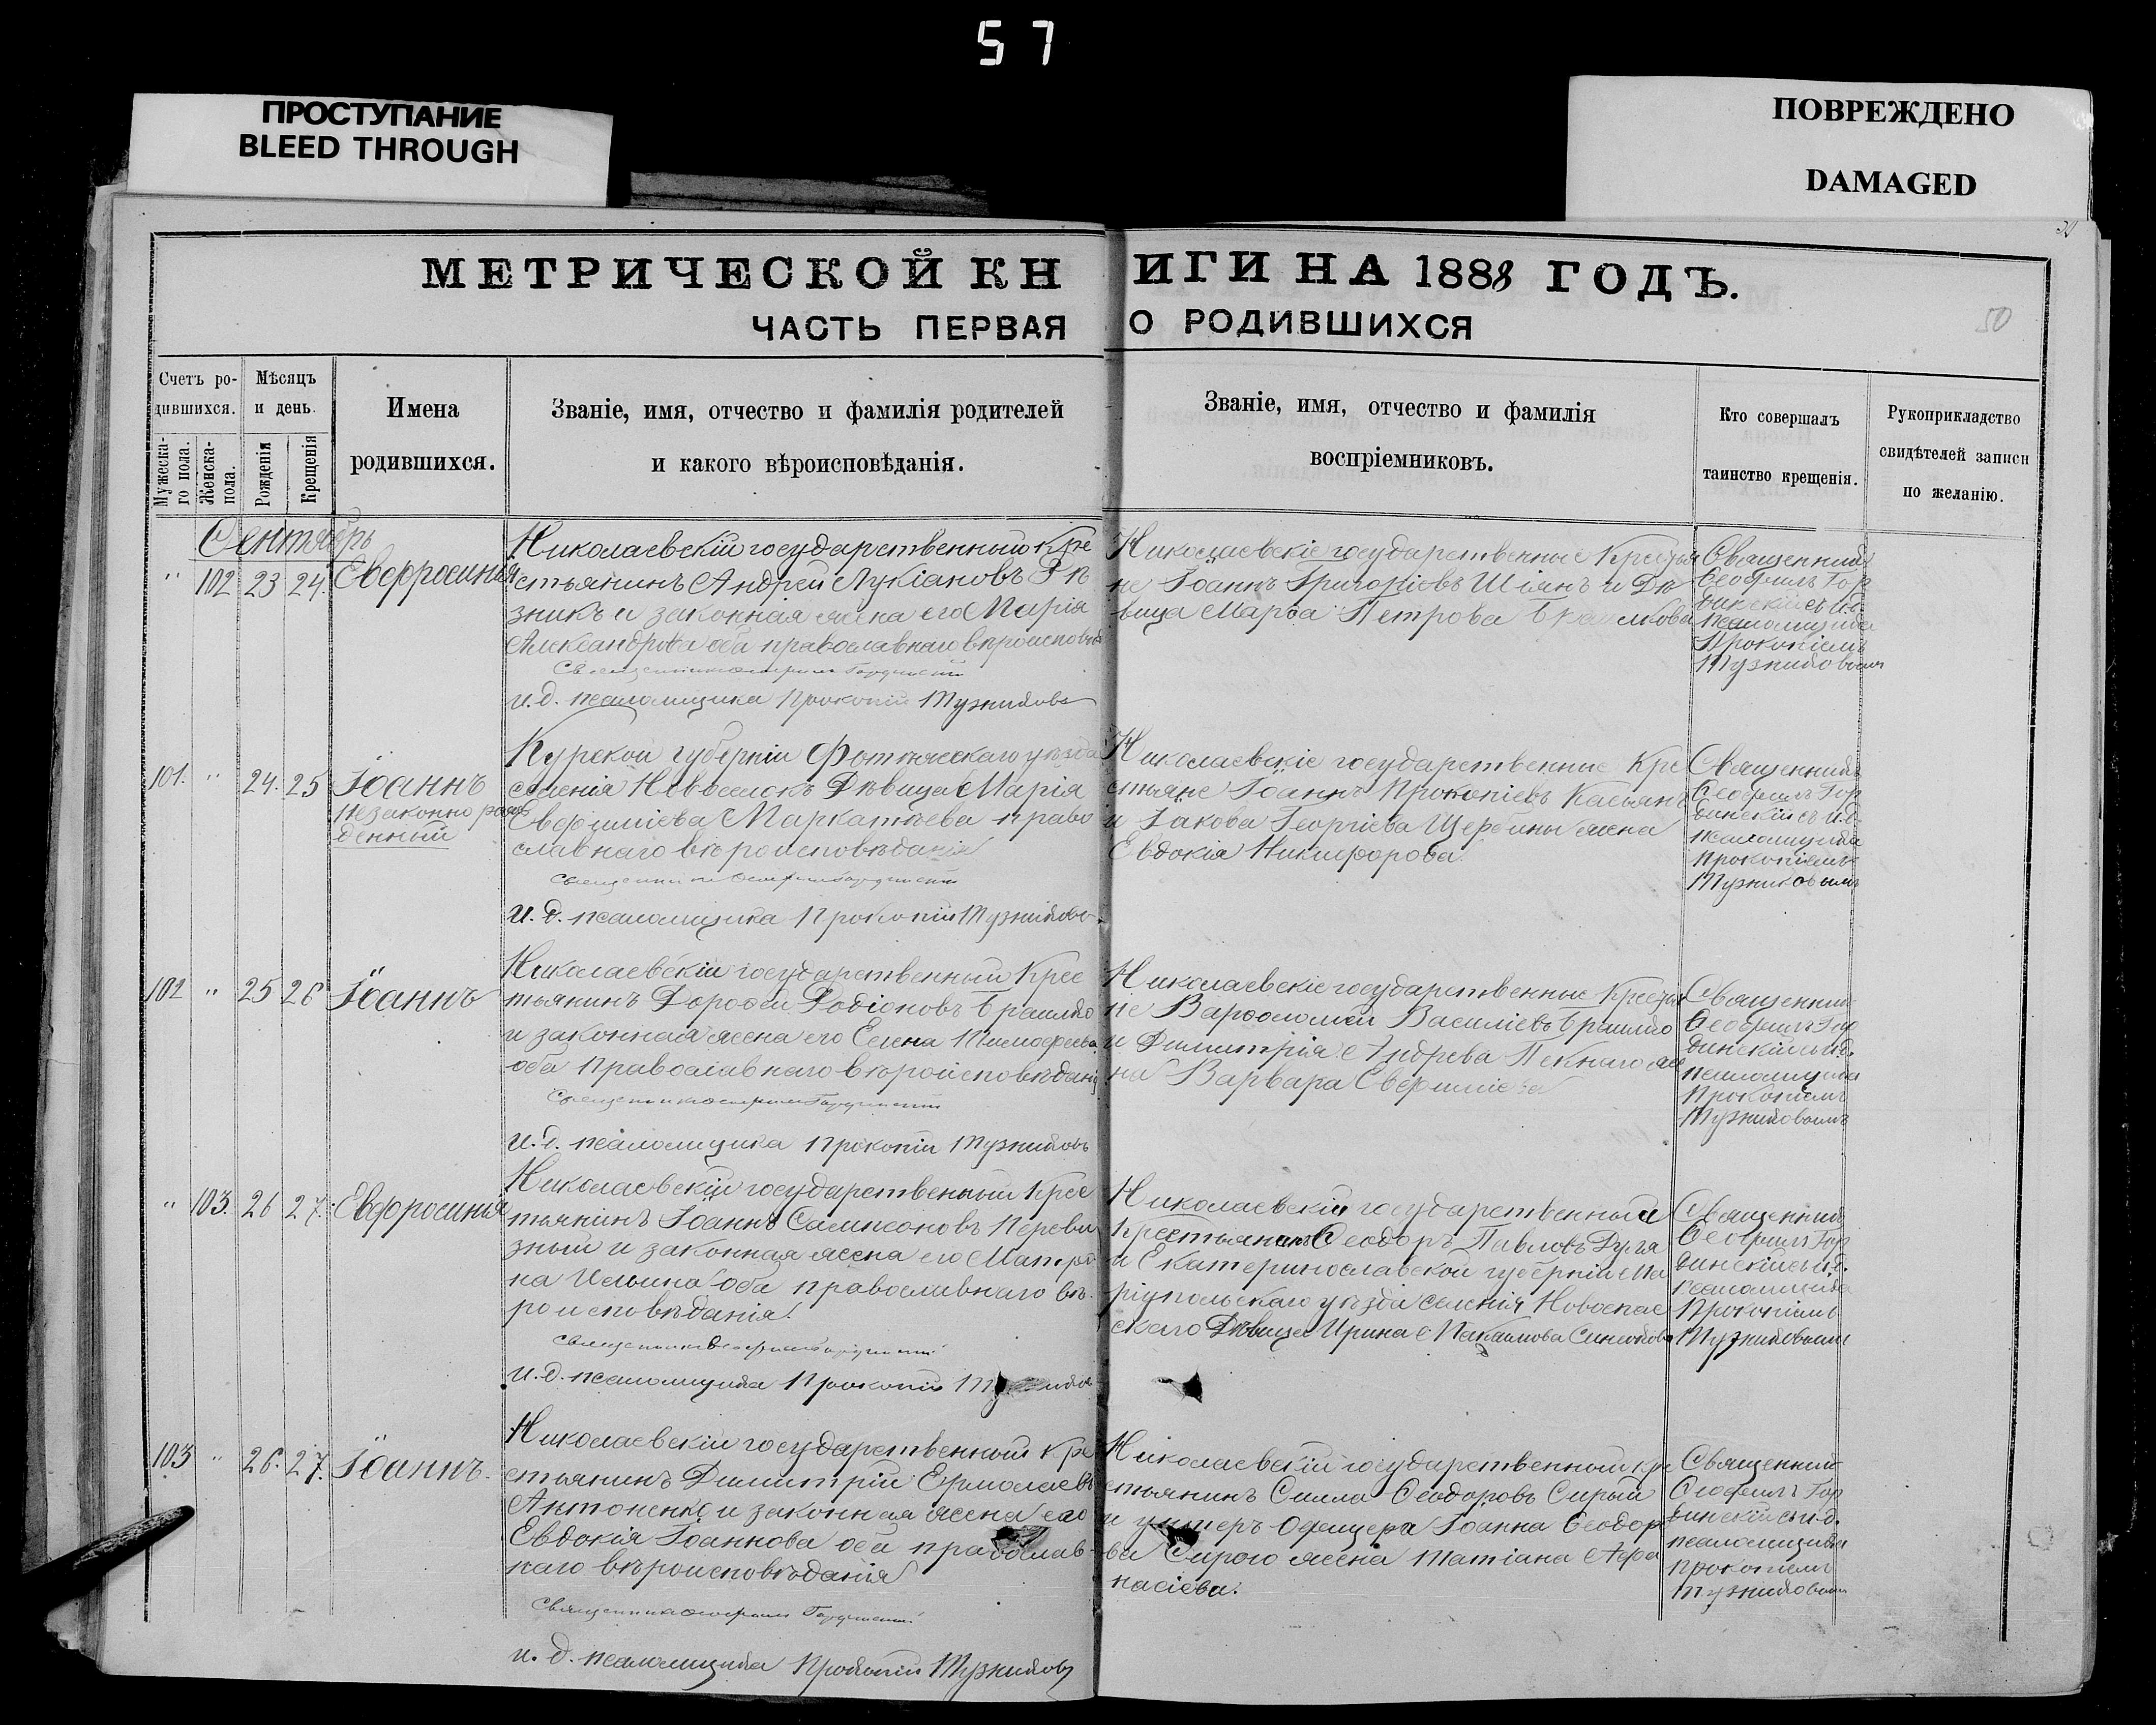 57
ПРОСТУПАНИЕ
BLEED THROUGH
ПОВРЕЖДЕНО
DAMAGED
МЕТРИЧЕСКОЙ КНИГИ НА 1888 ГОДЪ.
ЧАСТЬ ПЕРВАЯ О РОДИВШИХСЯ
50
Счетъ ро-
дившихся.
Мужеска-
го пола.
Женска-
пола.
Мѣсяцъ
и день.
Рожденія
Крещенія
Имена
родившихся.
Званіе, имя, отчество и фамилія родителей
и какого вѣроисповѣданія.
Званіе, имя, отчество и фамилія
воспріемниковъ.
Кто совершалъ
таинство крещенія.
Рукоприкладство
свидѣтелей записи
по желанію.
Сентябрь
" 102 23 24. Евфросинія
Николаевскій государственный кре
стьянинъ Андрей Лукіановъ
зникъ и законная жена его Марія
Александрова оба православнаго вѣроисповѣд
и.д. псаломщика Прокопій Тузниковъ
Николаевскіе государственные Крестья
не Іоаннъ Григоріевъ и Дѣ
вица Марѳа Петрова
Священник
Ѳеофилъ Гор
динскій съ и.д.
псаломщика
Прокопіемъ
Тузниковым
101. " 24. 25 Іоаннъ
незаконно рож
денный
Курской губерніи уѣзда
селенія Новоселокъ Дѣвица Марія
Евфиміева право
славнаго вѣроисповѣданія
и.д. псаломщика Прокопій Тузниковъ
Николаевскіе государственные Кре
стьяне Іоаннъ Прокопіевъ Касьянъ
и Іакова Георгіева Щербины жена
Евдокія Никифорова.
Священник
Ѳеофилъ Гор
динскій съ и.д.
псаломщика
Прокопіемъ
Тузниковымъ
102 " 25 26 Іоаннъ
Николаевскій государственный Крес
тьянинъ Дороѳей Родіоновъ
и законная жена его Елена
оба православнаго вѣроисповѣданія
и.д. псаломщика Прокопій Тузниковъ
Николаевскіе государственные Крестья
не Варѳоломей Василіевъ
и Димитрія Андреева жe
на Варвара Евфиміева
Священник
Ѳеофилъ Гор
динскій съ и.д.
псаломщика
Прокопіемъ
Тузниковымъ
" 103. 26 27. Евфросинія
Николаевскій государственный Крес
тьянинъ Іоаннъ Сампсоновъ Переви
зный и законная жена его Матро
на Ильина оба православнаго вѣ
роисповѣданія.
и.д. псаломщика Прокопій
Николаевскій государственный
Крестьянинъ Ѳеодоръ Павловъ
и Екатеринославской губерніи Ма
ріупольскаго уѣзда селенія Новоспас
скаго Дѣвица Ирина
Священник
Ѳеофилъ Гор
динскій съ и.д.
псаломщика
Прокопіемъ
Тузниковымъ
103 " 26. 27. Іоаннъ.
Николаевскій государственный кре
стьянинъ Димитрій Ермолаевъ
Антоненко и законная жена его
Евдокія Іоаннова оба православ-
наго вѣроисповѣданія
и.д. псаломщика Прокопій Тузниковъ
Николаевскій государственный кре
стьянинъ Сила Ѳеодоровъ Сирый
и унтеръ офицера Іоанна Ѳеодоро
ва Сирого жена Татіана Аѳа
насіева.
Священник
Ѳеофилъ Гор
динскій съ и.д.
псаломщика
Прокопіемъ
Тузниковым